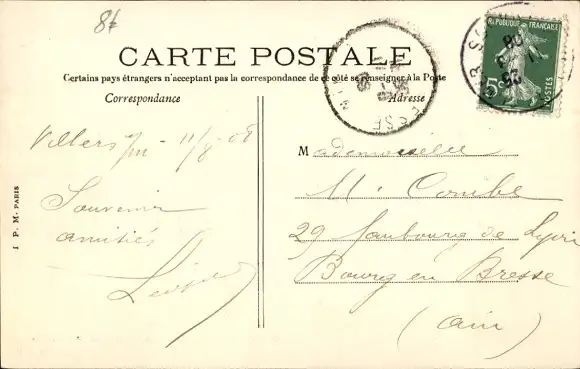 86
CARTE POSTALE
Certains pays étrangers n'acceptant pas la correspondance de ce côté se renseigner à la Poste
Correspondance
Adresse
REPUBLIQUE FRANÇAISE
5c
POSTES
Villers s/m - 11/8 - 08
Souvenir
amitiés
Mademoiselle
M. Combe
29 faubourg de Lyon
Bourg en Bresse
(Ain)
I P. M - PARIS